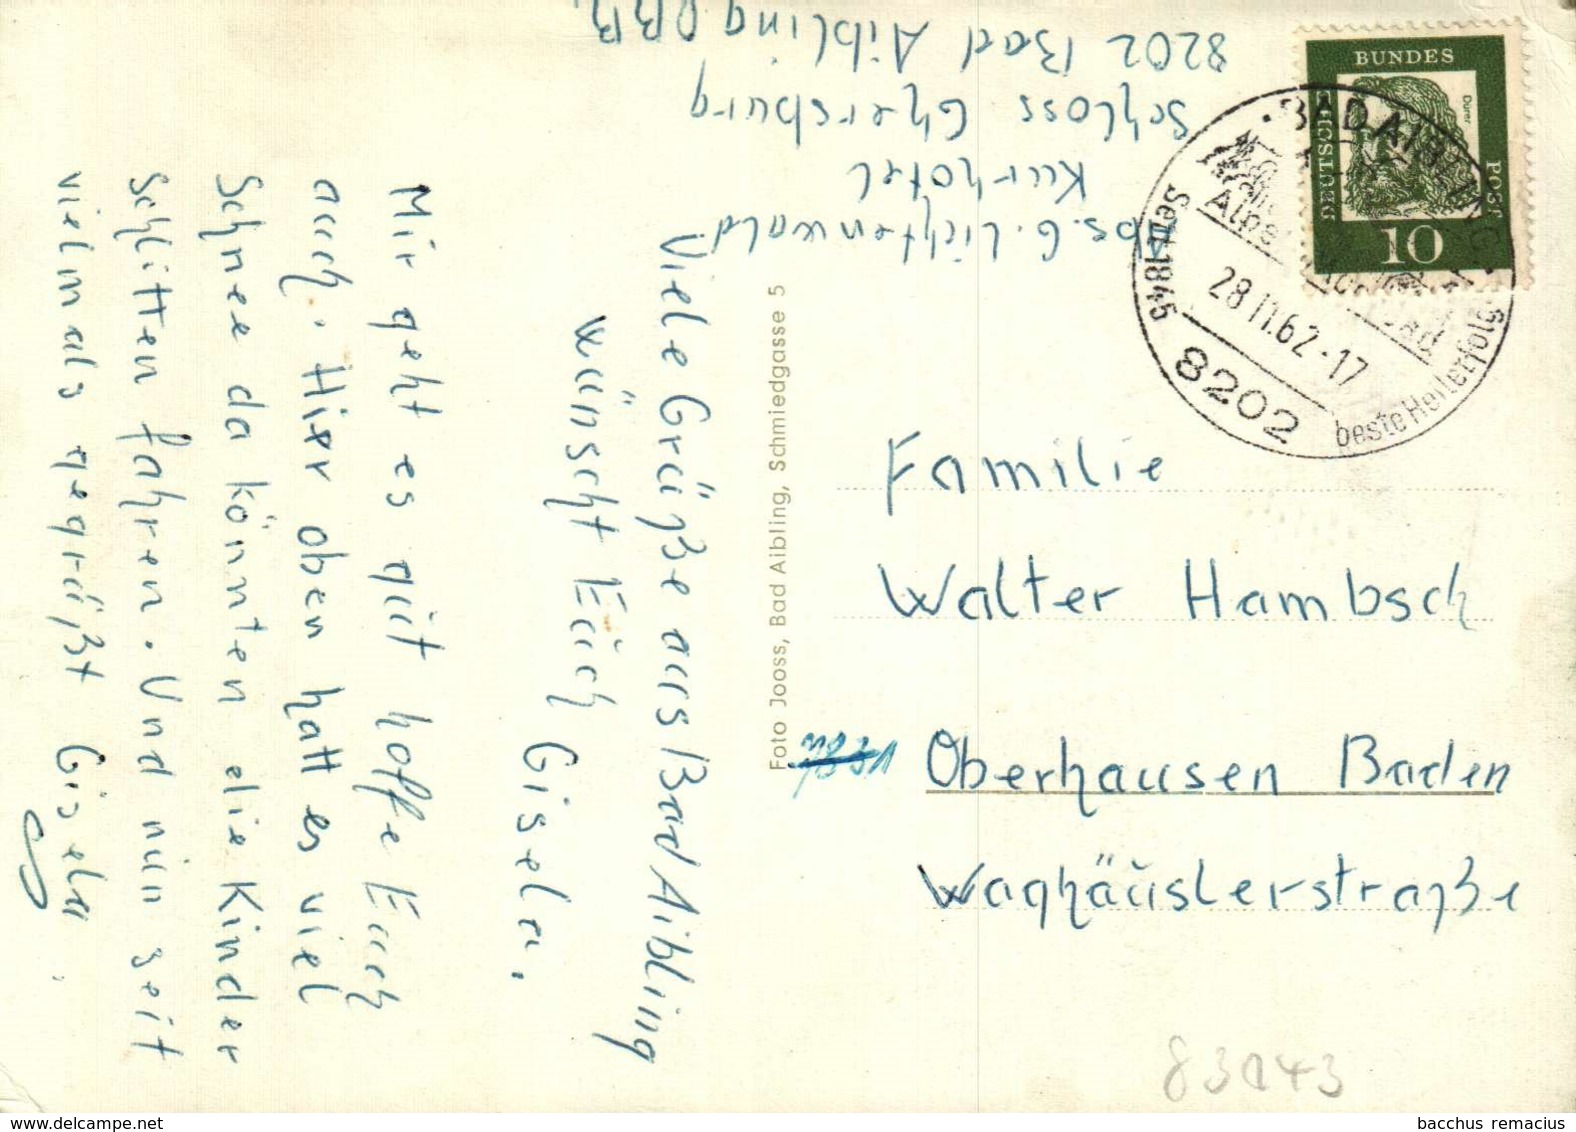 Viele Grüße aus Bad Aibling
wünscht Euch
Gisela.
Mir geht es gut hoffe Euch
auch. Hier oben hatt es viel
Schnee da könnten die Kinder
Schlitten fahren. Und nun seit
vielmals gegrüßt Gisela.
G. Lichtenwald.
Kurhotel
Schloss Ghersburg
8202 Bad Aibling OBB.
Foto Jooss, Bad Aibling, Schmiedgasse 5
DEUTSCHE
BUNDES
POST
Dürer
10
· BAD AIBLING ·
Seit 1845
beste Heilerfolge
28.11.62-17
8202
Familie
Walter Hambsch
Oberhausen Baden
Waghäuslerstraße
83043
bacchus remacius